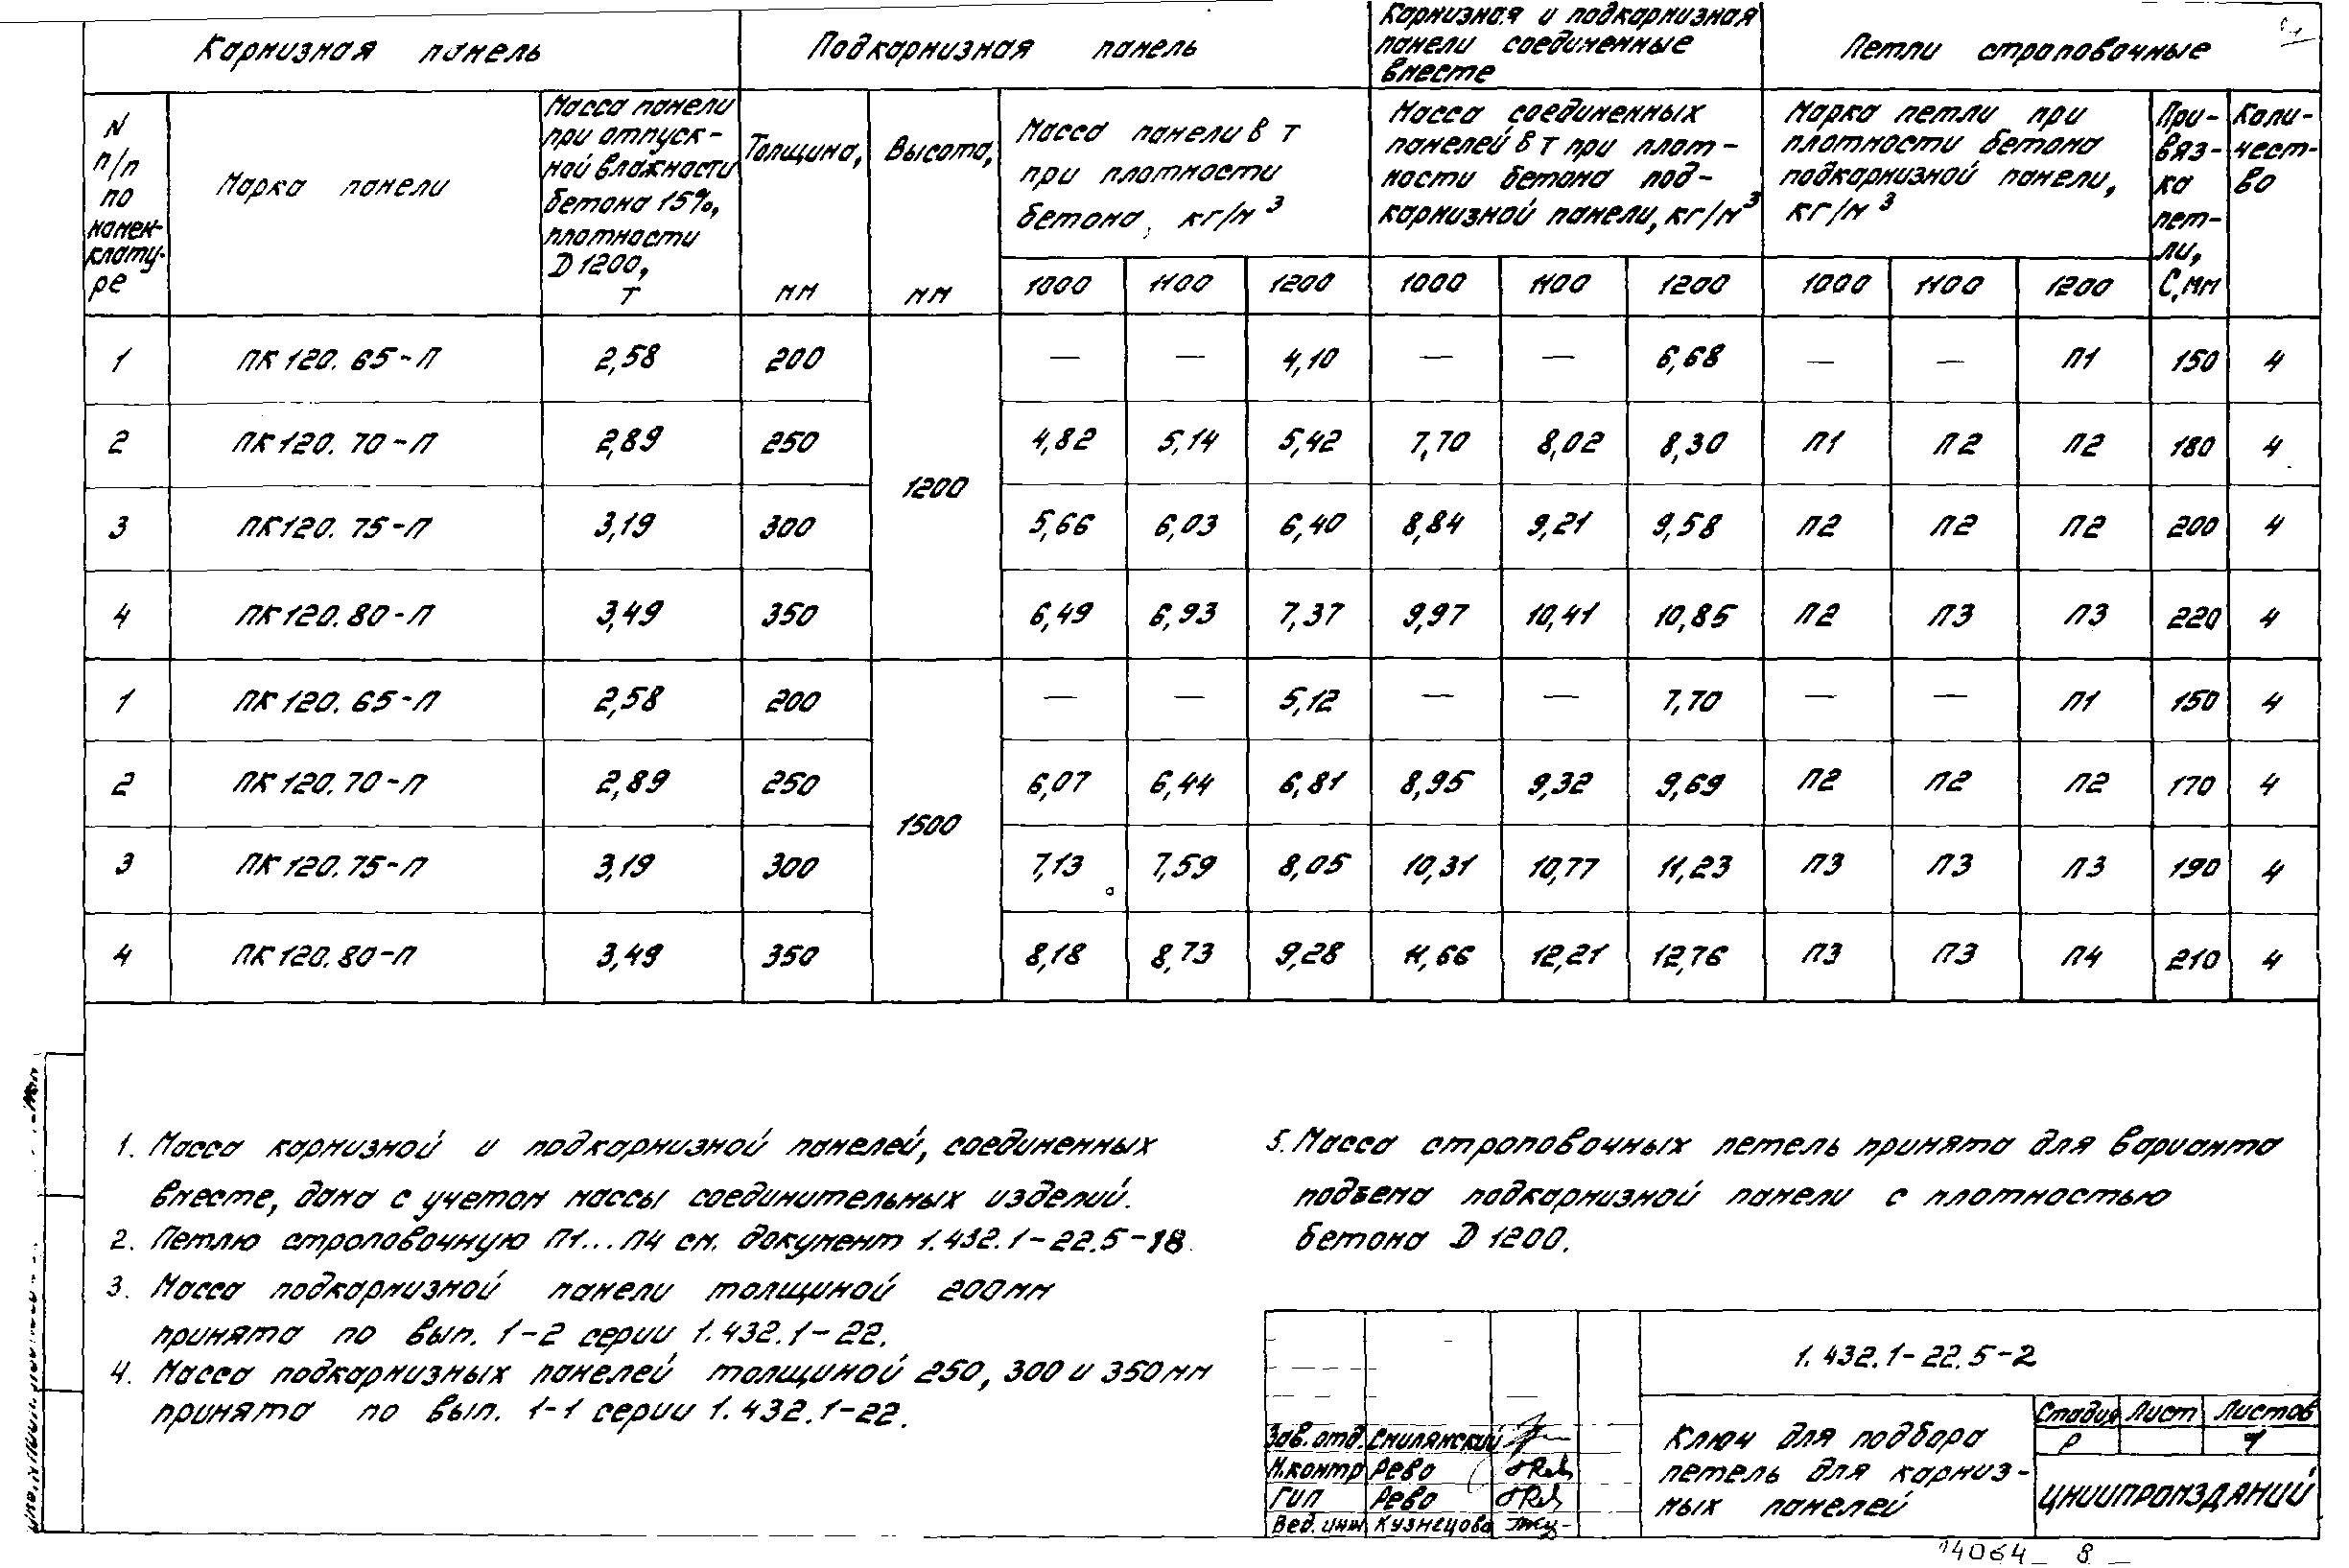 Карнизная панель
Подкарнизная панель
Карнизная и подкарнизная
панели соединенные
вместе
Петли строповочные
N
п/п
по
номен-
клату-
ре
Марка панели
Масса панели
при отпуск-
ной влажности
бетона 15%,
плотности
D 1200,
т
Толщина,
мм
Высота,
мм
Масса панели в т
при плотности
бетона, кг/м³
Масса соединенных
панелей в т при плот-
ности бетона под-
карнизной панели, кг/м³
Марка петли при
плотности бетона
подкарнизной панели,
кг/м³
При-
вяз-
ка
пет-
ли,
С, мм
Коли-
чест-
во
1000 1100 1200 1000 1100 1200 1000 1100 1200
1 ПК 120.65-П 2,58 200 — — 4,10 — — 6,68 — — П1 150 4
2 ПК 120.70-П 2,89 250 4,82 5,14 5,42 7,70 8,02 8,30 П1 П2 П2 180 4
1200
3 ПК 120.75-П 3,19 300 5,66 6,03 6,40 8,84 9,21 9,58 П2 П2 П2 200 4
4 ПК 120.80-П 3,49 350 6,49 6,93 7,37 9,97 10,41 10,85 П2 П3 П3 220 4
1 ПК 120.65-П 2,58 200 — — 5,12 — — 7,70 — — П1 150 4
2 ПК 120.70-П 2,89 250 6,07 6,44 6,81 8,95 9,32 9,69 П2 П2 П2 170 4
1500
3 ПК 120.75-П 3,19 300 7,13 7,59 8,05 10,31 10,77 11,23 П3 П3 П3 190 4
4 ПК 120.80-П 3,49 350 8,18 8,73 9,28 11,66 12,21 12,76 П3 П3 П4 210 4
1. Масса карнизной и подкарнизной панелей, соединенных
вместе, дана с учетом массы соединительных изделий.
2. Петлю строповочную П1...П4 см. документ 1.432.1-22.5-18.
3. Масса подкарнизной панели толщиной 200мм
принята по вып. 1-2 серии 1.432.1-22.
4. Масса подкарнизных панелей толщиной 250, 300 и 350мм
принята по вып. 1-1 серии 1.432.1-22.
5. Масса строповочных петель принята для варианта
подъема подкарнизной панели с плотностью
бетона D 1200.
1.432.1-22.5-2
Зав. отд. Смилянский
Н.контр Рево
ГИП Рево
Вед. инж. Кузнецова
Ключ для подбора
петель для карниз-
ных панелей
Стадия Лист Листов
Р 1
ЦНИИПРОМЗДАНИЙ
14064 8